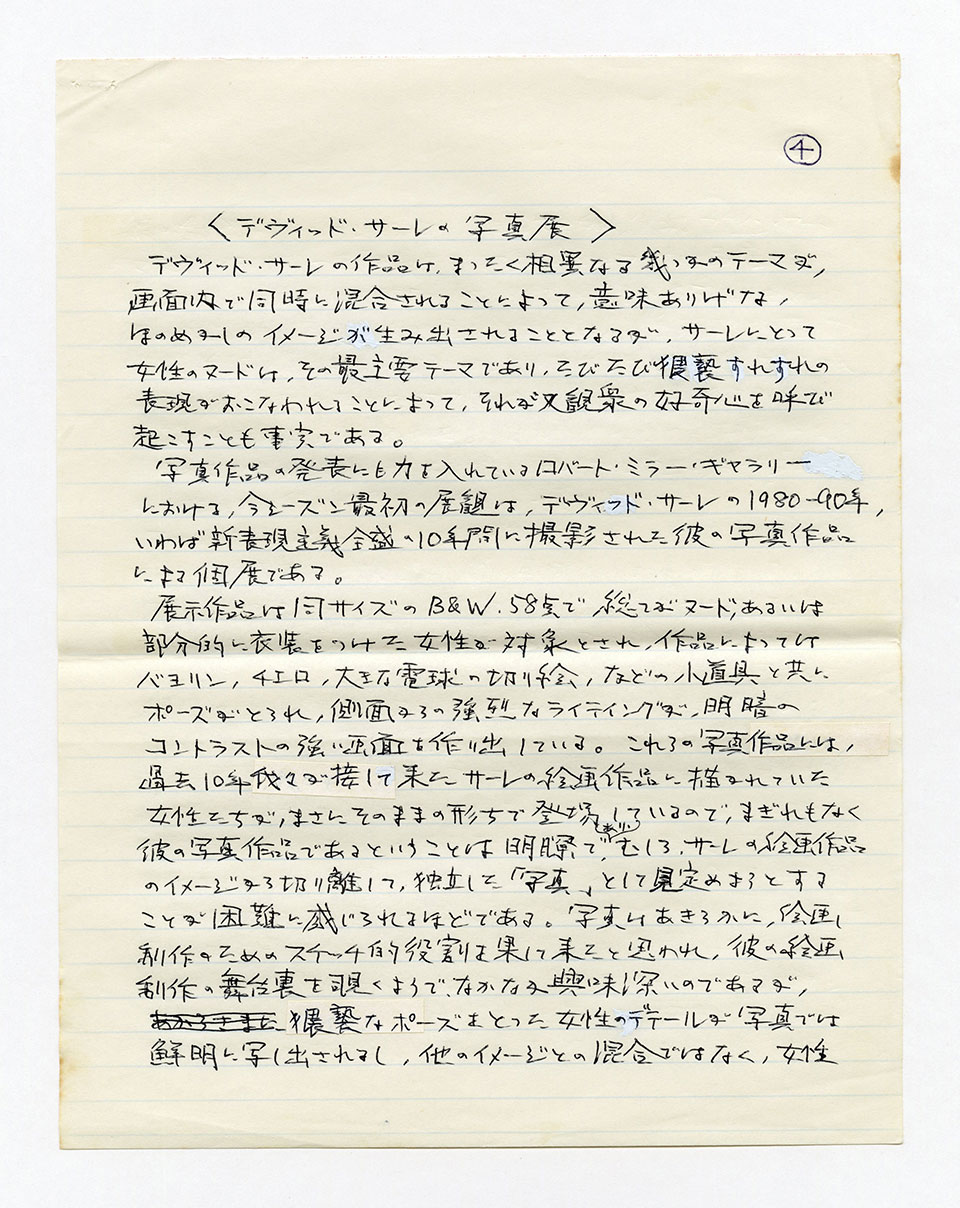 ④
〈デヴィッド・サーレの写真展〉
デヴィッド・サーレの作品は、まったく相異なる幾つかのテーマが、
画面内で同時に混合されることによって、意味ありげな、
ほのめかしのイメージが生み出されることとなるが、サーレにとって
女性のヌードは、その最主要テーマであり、たびたび猥褻すれすれの
表現がおこなわれることによって、それが又観衆の好奇心を呼び
起こすことも事実である。
写真作品の発表にも力を入れているロバート・ミラー・ギャラリー
における、今シーズン最初の展観は、デヴィッド・サーレの1980-90年、
いわば新表現主義全盛の10年間に撮影された彼の写真作品
による個展である。
展示作品は同サイズのB&W.58点で総てがヌード、あるいは
部分的に衣装をつけた女性が対象とされ、作品によっては
バヨリン、チェロ、大きな電球の切り絵、などの小道具と共に
ポーズがとられ、側面からの強烈なライティングが、明暗の
コントラストの強い画面を作り出している。これらの写真作品には、
過去10年我々が接して来たサーレの絵画作品に描かれていた
女性たちが、まさにそのままの形ちで登場しているので、まぎれもなく
彼の写真作品であるということは明瞭であり、むしろ、サーレの絵画作品
のイメージから切り離して、独立した「写真」として見定めようとする
ことが困難に感じられるほどである。写真はあきらかに、絵画
制作のためのスケッチ的役割を果して来たと思われ、彼の絵画
制作の舞台裏を覗くようで、なかなか興味深いのであるが、
猥褻なポーズをとった女性のデテールが写真では
鮮明に写し出されるし、他のイメージとの混合ではなく、女性